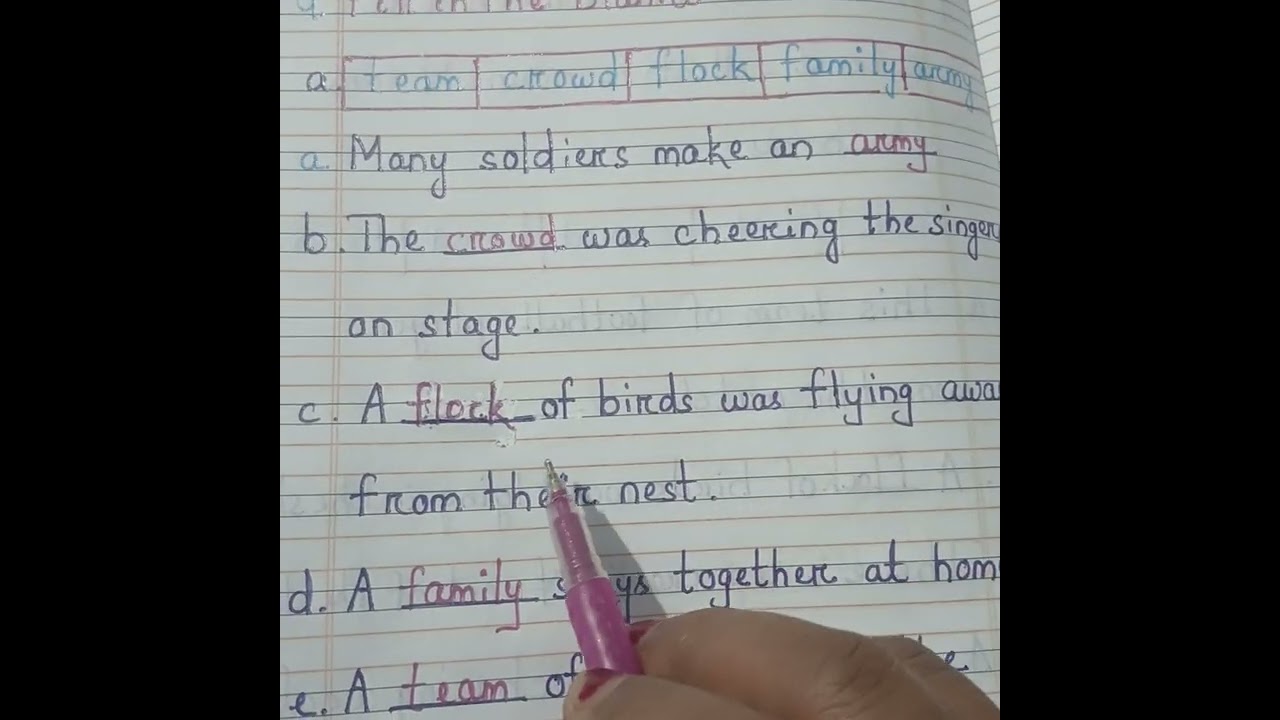 9. Fill in the blanks
a. team crowd flock family army
a. Many soldiers make an army
b. The crowd was cheering the singer
on stage.
c. A flock of birds was flying awa
from their nest.
d. A family stays together at hom
e. A team of